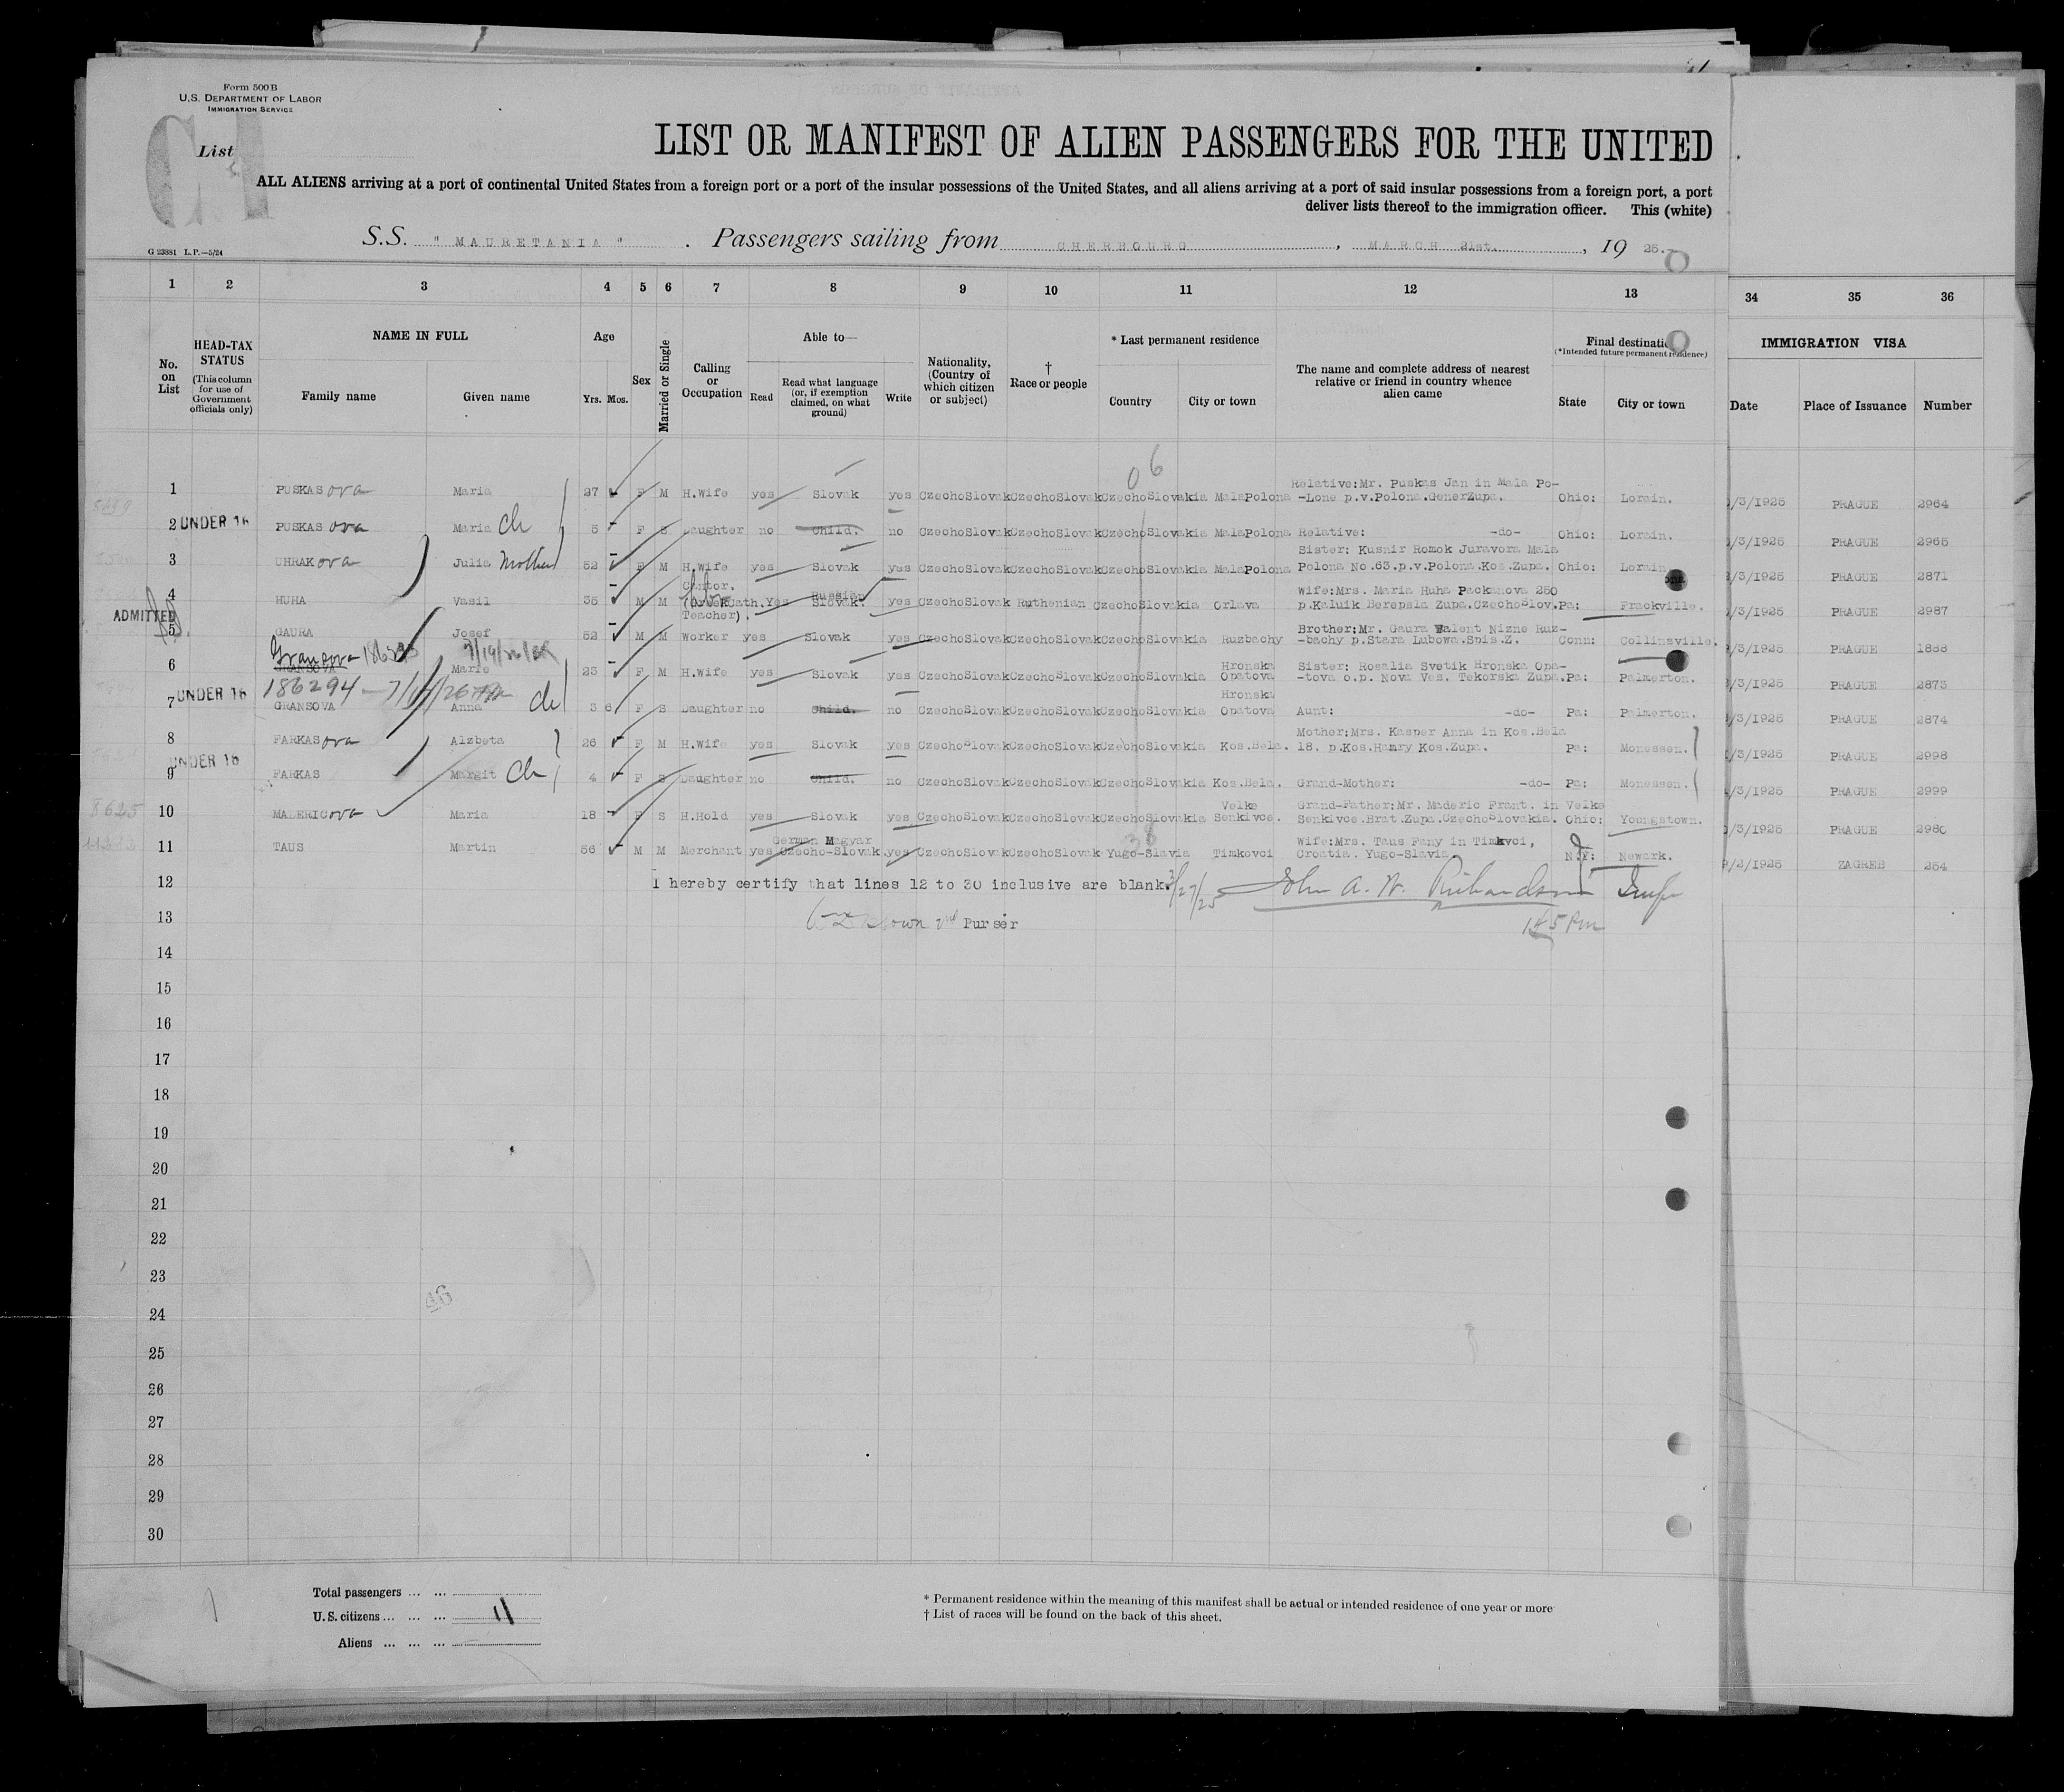 Form 500 B
U.S. DEPARTMENT OF LABOR
IMMIGRATION SERVICE
List
LIST OR MANIFEST OF ALIEN PASSENGERS FOR THE UNITED
ALL ALIENS arriving at a port of continental United States from a foreign port or a port of the insular possessions of the United States, and all aliens arriving at a port of said insular possessions from a foreign port, a port
deliver lists thereof to the immigration officer. This (white)
S.S. " MAURETANIA " . Passengers sailing from CHERBOURG , MARCH 21st. , 19 25.
G 23881 L.P.—5/24
1 2 3 4 5 6 7 8 9 10 11 12 13 34 35 36
No. on List
HEAD-TAX STATUS (This column for use of Government officials only)
NAME IN FULL Family name Given name
Age Yrs. Mos.
Sex
Married or Single
Calling or Occupation
Able to— Read Read what language (or, if exemption claimed, on what ground) Write
Nationality, (Country of which citizen or subject)
† Race or people
* Last permanent residence Country City or town
The name and complete address of nearest relative or friend in country whence alien came
Final destination (*Intended future permanent residence) State City or town
IMMIGRATION VISA Date Place of Issuance Number
06
1 PUSKAS ova Maria 27 F M H.Wife yes Slovak yes CzechoSlovak CzechoSlovak CzechoSlovakia MalaPolona Relative:Mr. Puskas Jan in Mala Po-
-Lone p.v.Polona.GenerZupa. Ohio: Lorain. /3/1925 PRAGUE 2964
2 UNDER 16 PUSKAS ova Maria ch 5 F S Daughter no Child. no CzechoSlovak CzechoSlovak CzechoSlovakia MalaPolona Relative: -do- Ohio: Lorain. /3/1925 PRAGUE 2965
3 UHRAK ova Julia Mother 52 F M H.Wife yes Slovak yes CzechoSlovak CzechoSlovak CzechoSlovakia MalaPolona Sister: Kusnir Romok Juravora Mala
Polona No.63.p.v.Polona.Kos.Zupa. Ohio: Lorain /3/1925 PRAGUE 2871
4 HUHA Vasil 35 M M Cantor. (Greek Cath. Teacher). Yes Russian Slovak. yes CzechoSlovak Ruthenian CzechoSlovakia Orlava Wife:Mrs. Maria Huha Packanova 250
p.Kaluik Berepsla Zupa.CzechoSlov. Pa: Frackville. /3/1925 PRAGUE 2987
ADMITTED
5 GAURA Josef 52 M M Worker yes Slovak yes CzechoSlovak CzechoSlovak CzechoSlovakia Ruzbachy Brother:Mr. Gaura Valent Nizne Ruz-
-bachy p.Stara Lubowa.Spis.Z. Conn: Collinsville. /3/1925 PRAGUE 1888
Gransova
6 GRANSOVA Marie 23 F M H.Wife yes Slovak yes CzechoSlovak CzechoSlovak CzechoSlovakia Hronska Opatova Sister: Rosalia Svetik Hronska Opa-
-tova o.p. Nova Ves. Tekorska Zupa. Pa: Palmerton. /3/1925 PRAGUE 2873
186294
7 UNDER 16 GRANSOVA Anna ch 3 6 F S Daughter no Child. no CzechoSlovak CzechoSlovak CzechoSlovakia Hronska Opatova Aunt: -do- Pa: Palmerton. /3/1925 PRAGUE 2874
8 FARKAS ova Alzbeta 26 F M H.Wife yes Slovak yes CzechoSlovak CzechoSlovak CzechoSlovakia Kos.Bela. Mother:Mrs. Kasper Anna in Kos.Bela
18. p.Kos.Hamry Kos.Zupa. Pa: Monessen. /3/1925 PRAGUE 2998
9 UNDER 16 FARKAS Margit ch 4 F S Daughter no Child. no CzechoSlovak CzechoSlovak CzechoSlovakia Kos.Bela. Grand-Mother: -do- Pa: Monessen. /3/1925 PRAGUE 2999
10 MADERIC ova Maria 18 F S H.Hold yes Slovak yes CzechoSlovak CzechoSlovak CzechoSlovakia Velke Senkivce. Grand-Father:Mr. Maderic Frant. in Velke
Senkivce.Brat.Zupa.CzechoSlovakia. Ohio: Youngstown. /3/1925 PRAGUE 2980
11 TAUS Martin 56 M M Merchant yes German Magyar Czecho-Slovak. yes CzechoSlovak CzechoSlovak Yugo-Slavia Timkovci Wife:Mrs. Taus Fany in Timkvci,
Croatia. Yugo-Slavia. N.Y: Newark. /2/1925 ZAGREB 254
12 I hereby certify that lines 12 to 30 inclusive are blank. 3/27/25 John A. W. Richardson Insp
13 Brown 2nd Purser 1 45 Pm
14
15
16
17
18
19
20
21
22
23
24
25
26
27
28
29
30
Total passengers ... ...
U.S. citizens ... ... ... 11
Aliens ... ... ...
* Permanent residence within the meaning of this manifest shall be actual or intended residence of one year or more
† List of races will be found on the back of this sheet.